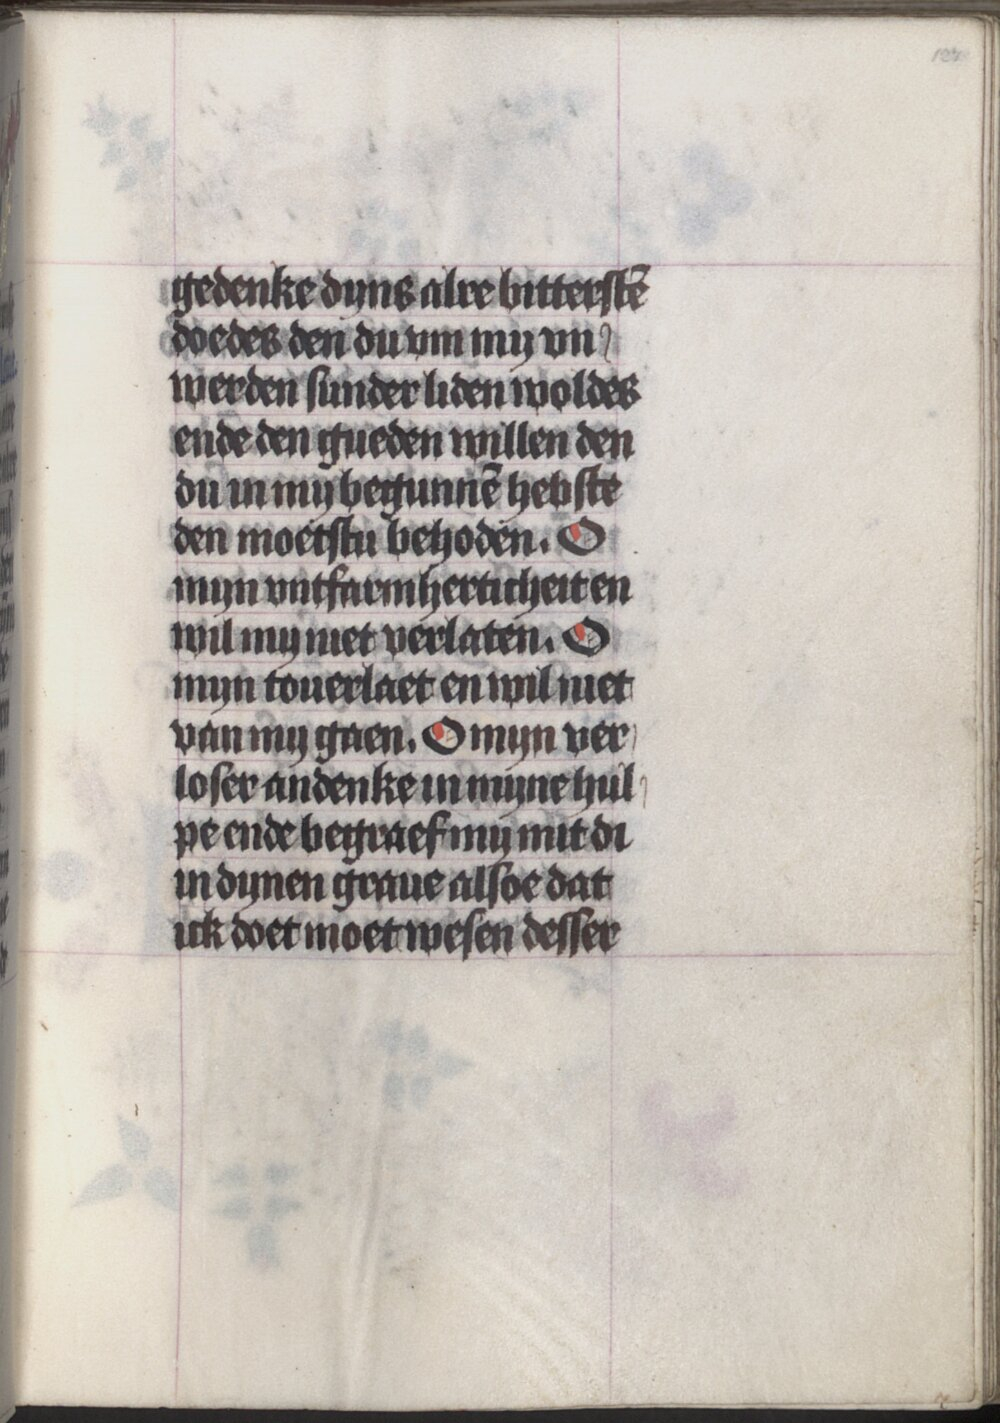 gedenke dyns alre bitterstē
doedes den du vm my vn
werden sunder liden woldes
ende den gueden willen den
du in my begunnē hebste
den moetstu behoden. O
myn vntfarmherticheit en
wil my niet verlaten. O
myn touerlaet en wil niet
van my gaen. O myn ver
loser andenke in myne hul
pe ende begraef my mit di
in dynen graue alsoe dat
ick doet moet wesen desser